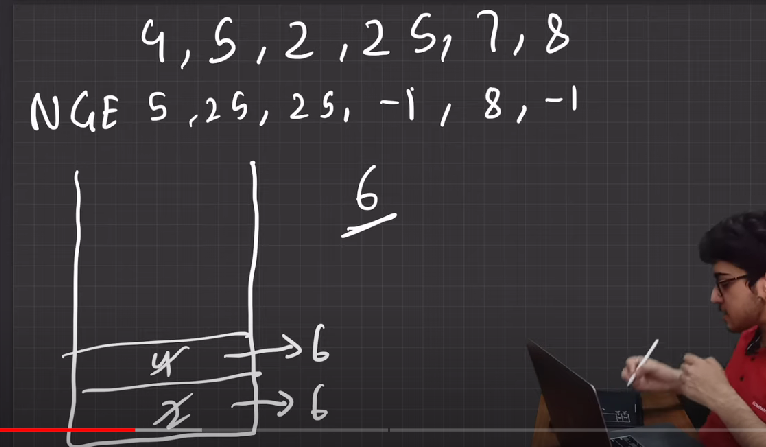 4, 5, 2, 25, 7, 8
NGE 5, 25, 25, -1, 8, -1
6
4 → 6
2 → 6